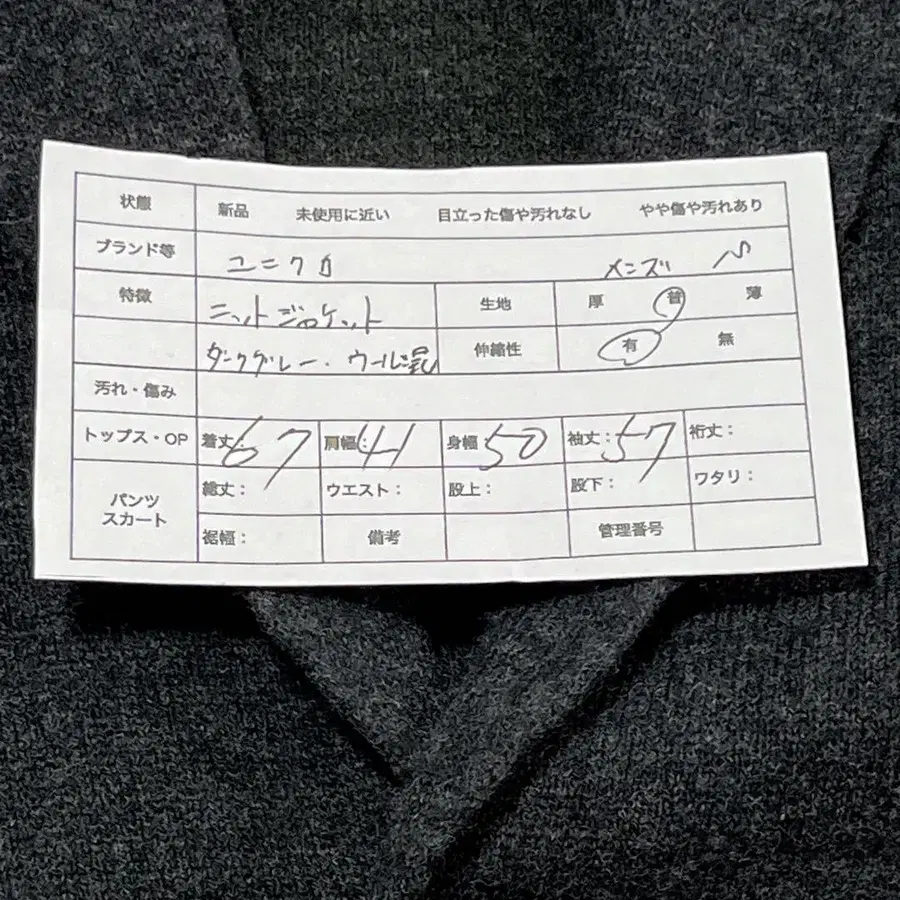 状態 新品 未使用に近い 目立った傷や汚れなし やや傷や汚れあり
ブランド等 ユニクロ メンズ
特徴 ニットジャケット 生地 厚 普 薄
ダークグレー・ウール混 伸縮性 有 無
汚れ・傷み
トップス・OP 着丈：67 肩幅：41 身幅：50 袖丈：57 裄丈：
パンツ スカート 総丈： ウエスト： 股上： 股下： ワタリ：
裾幅： 備考 管理番号